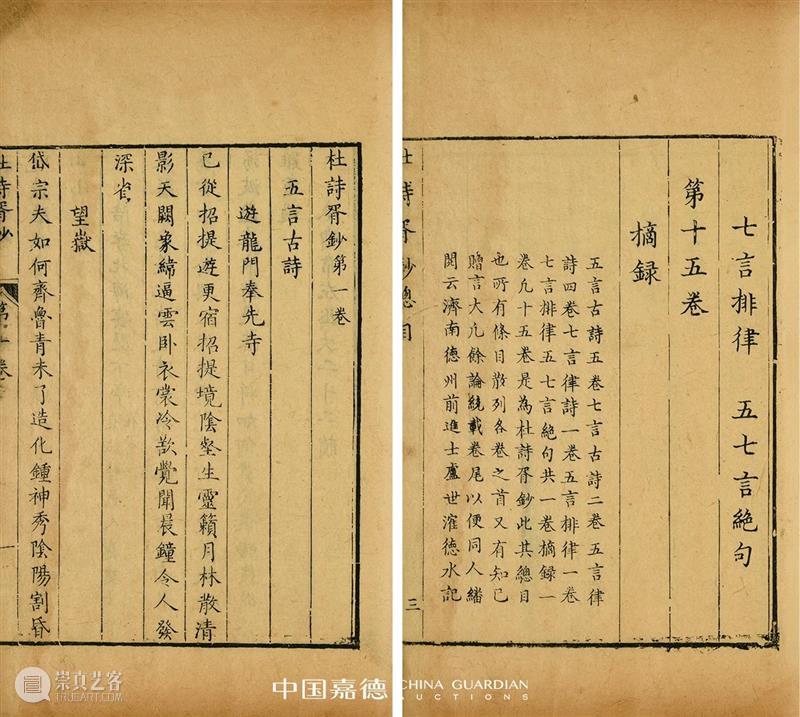 七言排律 五七言絕句
第十五卷
摘録
五言古詩五卷七言古詩二卷五言律
詩四卷七言律詩一卷五言排律一卷
七言排律五七言絕句共一卷摘録一
卷凡十五卷是為杜詩胥鈔此其總目
也所有條目散列各卷之首又有知己
贈言大凡餘論統載卷尾以便同人繙
閱云濟南德州前進士盧世㴶德水記
杜詩胥鈔總目 三
杜詩胥鈔第一卷
五言古詩
遊龍門奉先寺
已從招提遊更宿招提境陰壑生靈籟月林散清
影天闕象緯逼雲卧衣裳冷欲覺聞晨鐘令人發
深省
望嶽
岱宗夫如何齊魯青未了造化鍾神秀陰陽割昏
杜詩胥鈔 第一卷 一
崇真艺客
中国嘉德
CHINA GUARDIAN
AUCTIONS